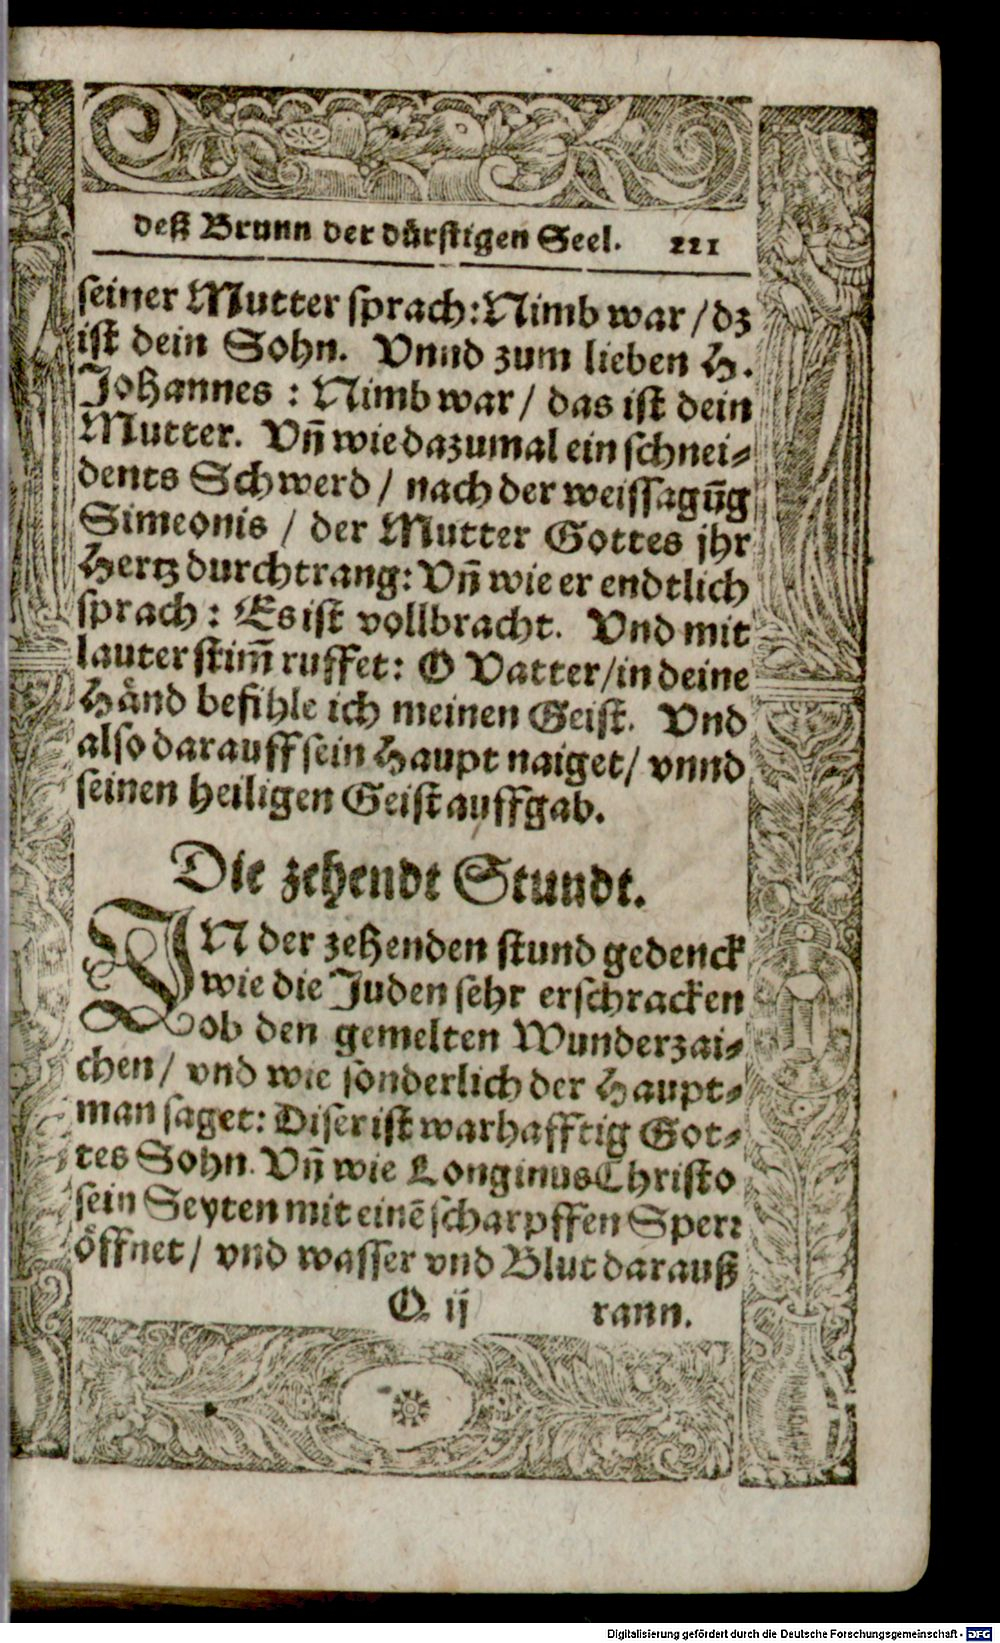 deß Brunn der dürstigen Seel. 211
seiner Mutter sprach: Nimb war / dz
ist dein Sohn. Vnnd zum lieben H.
Johannes : Nimb war / das ist dein
Mutter. Vñ wie dazumal ein schnei-
dents Schwerd / nach der weissagũg
Simeonis / der Mutter Gottes jhr
Hertz durchtrang: Vñ wie er endtlich
sprach : Es ist vollbracht. Vnd mit
lauter stim̃ ruffet: O Vatter / in deine
Händ befihle ich meinen Geist. Vnd
also darauff sein Haupt naiget / vnnd
seinen heiligen Geist auffgab.
Die zehendt Stundt.
IN der zehenden stund gedenck
wie die Juden sehr erschracken
ob den gemelten Wunderzai-
chen / vnd wie sonderlich der Haupt-
man saget: Diser ist warhafftig Got-
tes Sohn. Vñ wie Longinus Christo
sein Seyten mit einē scharpffen Sperr
öffnet / vnd wasser vnd Blut darauß
O ij rann.
Digitalisierung gefördert durch die Deutsche Forschungsgemeinschaft - DFG